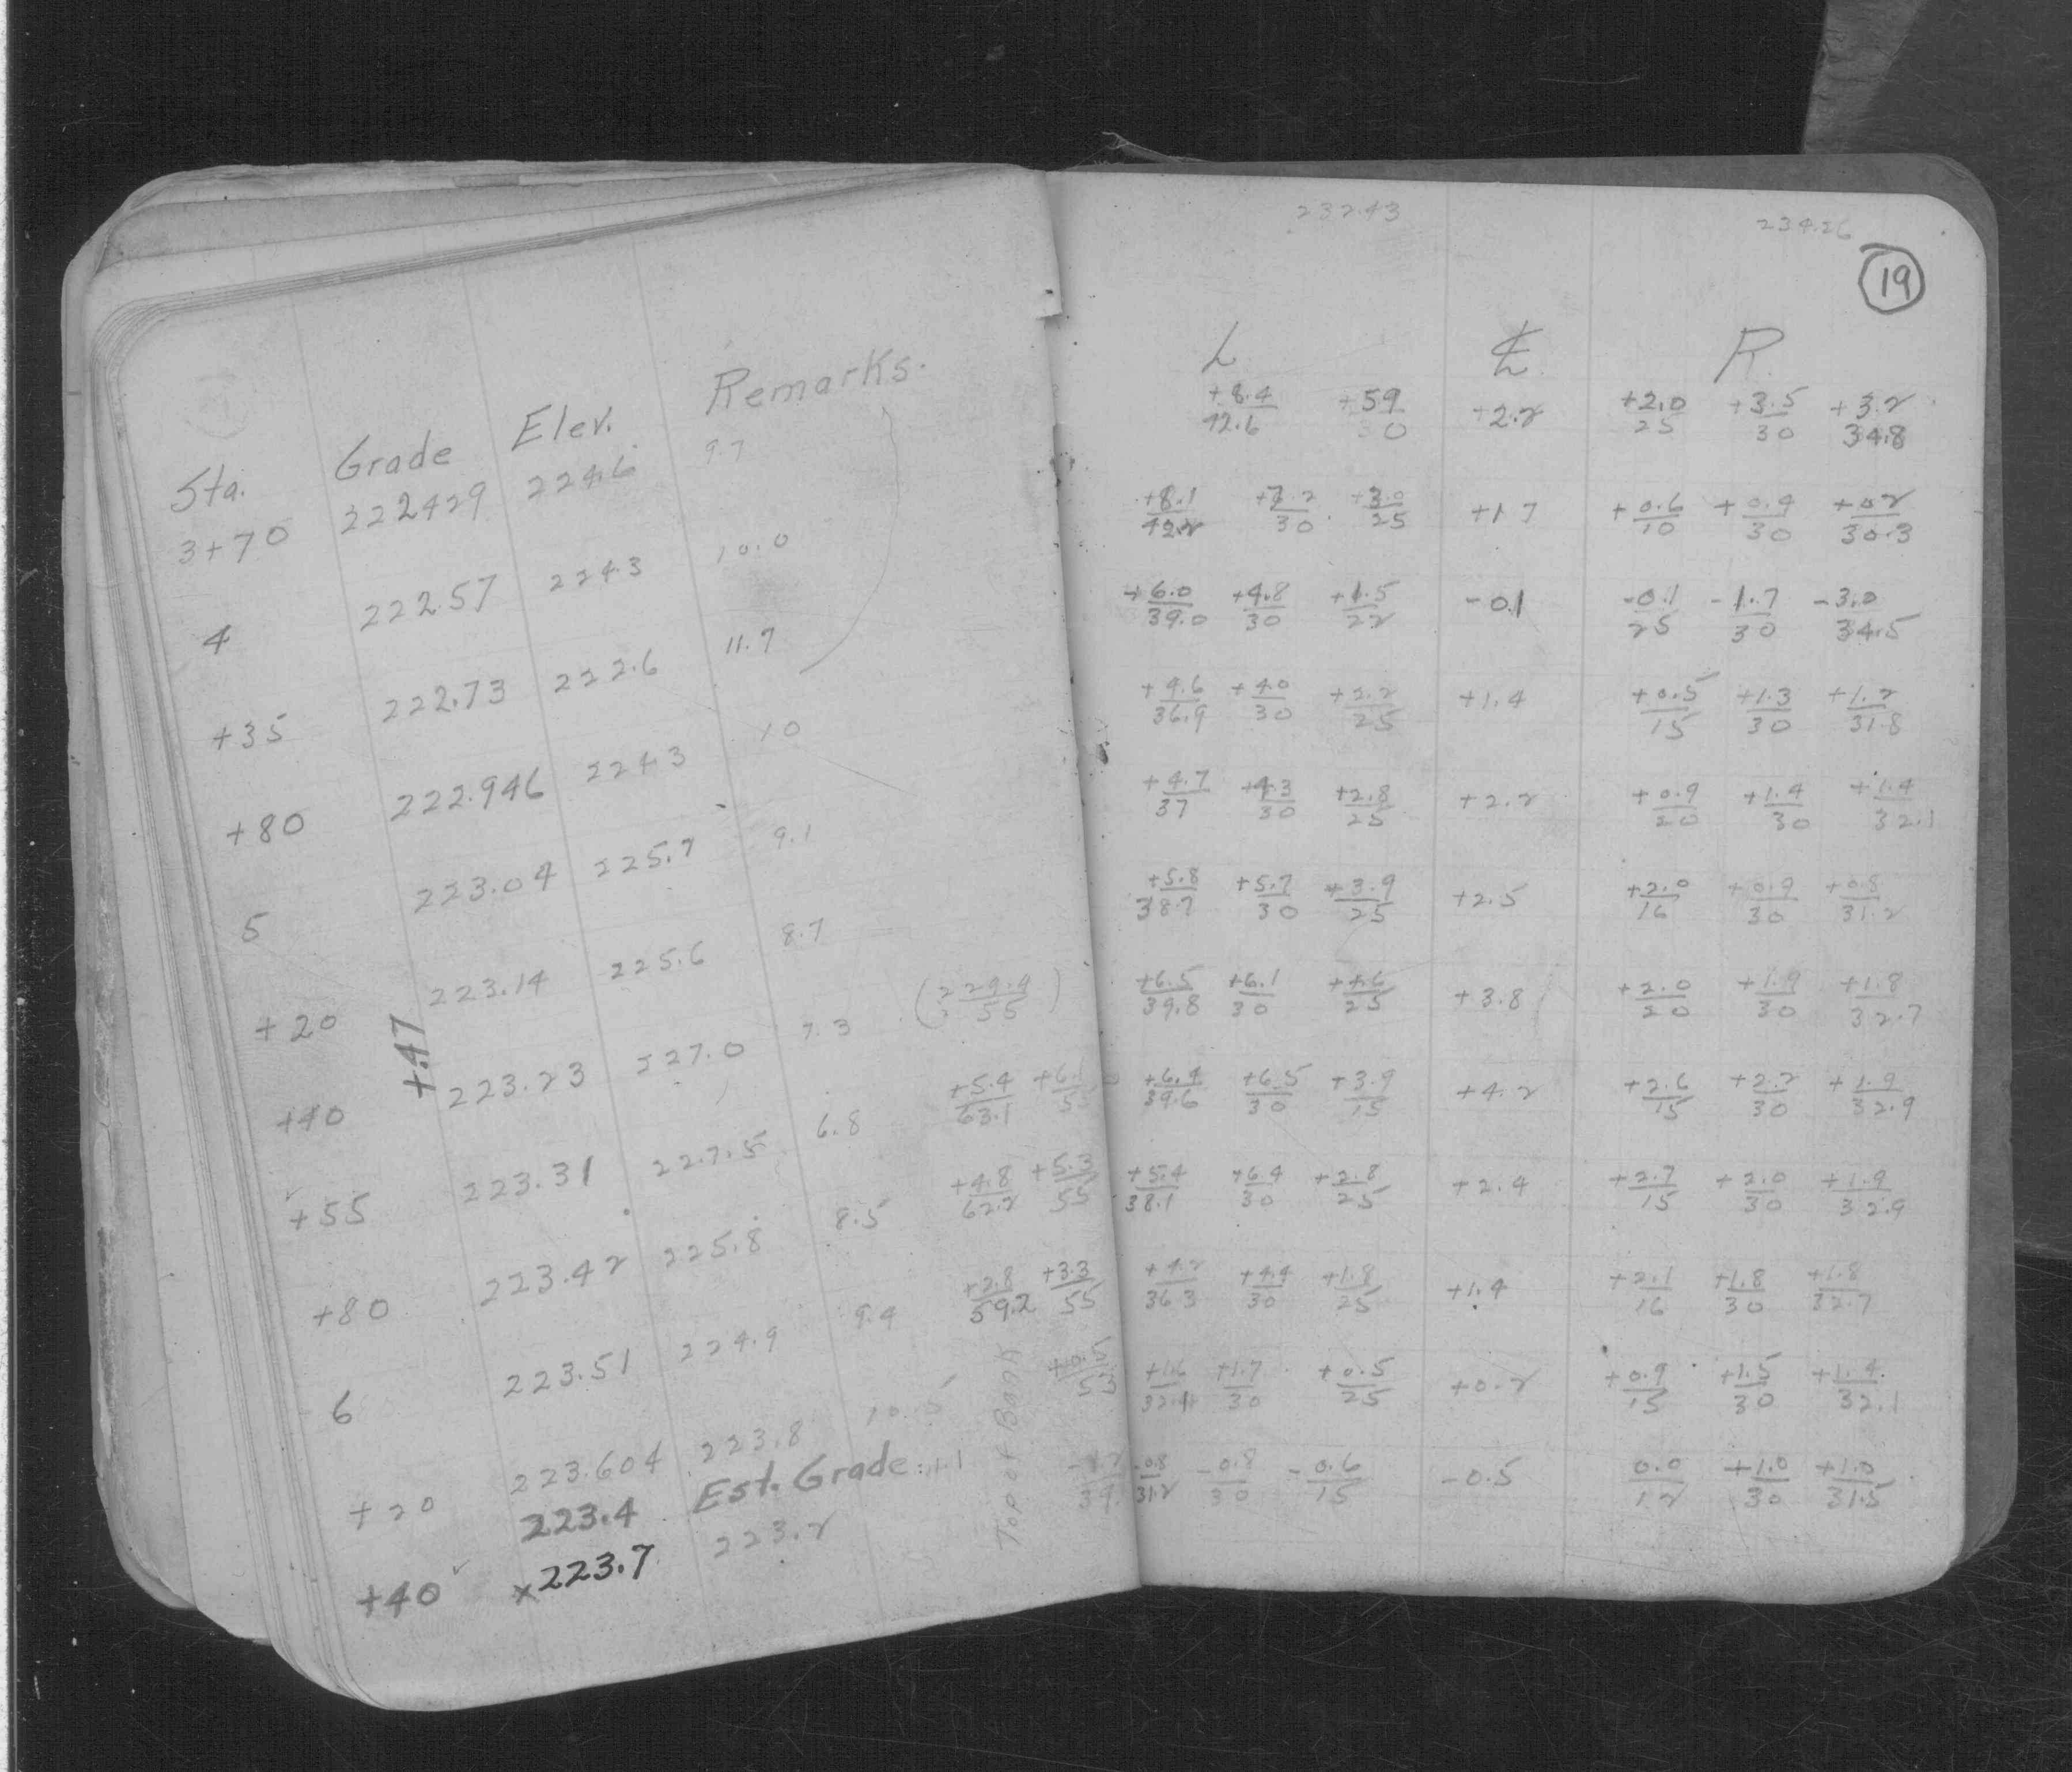 Sta. Grade Elev. Remarks.
3+70 222429 224.6 9.7
4 222.57 224.3 10.0
+35 222.73 222.6 11.7
+80 222.946 224.3 10
5 223.04 225.7 9.1
+20 223.14 225.6 8.7
+.47
+40 223.23 227.0 7.3 (229.4/55)
+55 223.31 227.5 6.8 +5.4/63.1
+80 223.42 225.8 8.5 +4.8/62.2 +5.3/55
6 223.51 224.9 9.4 +2.8/59.2 +3.3/55
+20 223.604 223.8
223.4 Est. Grade
+40 x223.7 223.2
Top of Bank
232.43 234.26
19
L ℄ R.
+8.4/42.6 +59/0 +2.2 +2.0/25 +3.5/30 +3.2/34.8
+8.1/42.2 +7.2/30 +3.0/25 +1.7 +0.6/10 +0.9/30 +02/30.3
+6.0/39.0 +4.8/30 +1.5/22 -0.1 -0.1/25 -1.7/30 -3.0/34.5
+4.6/36.9 +4.0/30 +2.2/25 +1.4 +0.5/15 +1.3/30 +1.2/31.8
+4.7/37 +4.3/30 +2.8/25 +2.2 +0.9/20 +1.4/30 +1.4/32.1
+5.8/38.7 +5.7/30 +3.9/25 +2.5 +2.0/16 +0.9/30 +0.8/31.2
+6.5/39.8 +6.1/30 +4.6/25 +3.8 +2.0/20 +1.9/30 +1.8/32.7
+6.4/39.6 +6.5/30 +3.9/15 +4.2 +2.6/15 +2.2/30 +1.9/32.9
+5.4/38.1 +6.4/30 +2.8/25 +2.4 +2.7/15 +2.0/30 +1.9/32.9
+4.2/36.3 +4.4/30 +1.8/25 +1.4 +2.1/16 +1.8/30 +1.8/32.7
+1.6/32.4 +1.7/30 +0.5/25 +0.2 +0.9/15 +1.5/30 +1.4/32.1
-0.8/31.2 -0.8/30 -0.6/15 -0.5 0.0/12 +1.0/30 +1.0/31.5